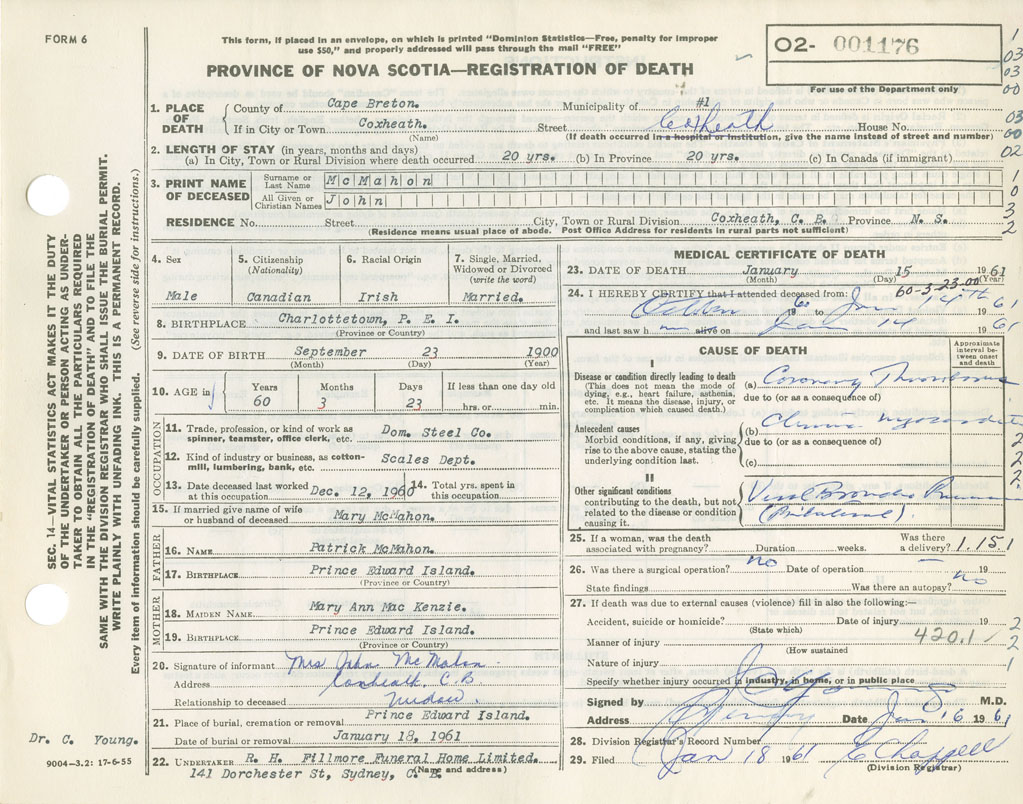 FORM 6
This form, if placed in an envelope, on which is printed "Dominion Statistics—Free, penalty for improper
use $50," and properly addressed will pass through the mail "FREE"
02- 001176
PROVINCE OF NOVA SCOTIA—REGISTRATION OF DEATH
For use of the Department only
1. PLACE OF DEATH
County of Cape Breton. Municipality of #1
If in City or Town Coxheath. Street Coxheath House No.
(Name) (If death occurred in a hospital or institution, give the name instead of street and number)
2. LENGTH OF STAY (in years, months and days)
(a) In City, Town or Rural Division where death occurred 20 yrs. (b) In Province 20 yrs. (c) In Canada (if immigrant)
3. PRINT NAME OF DECEASED
Surname or Last Name McMahon
All Given or Christian Names John
RESIDENCE No. Street City, Town or Rural Division Coxheath, C. B. Province N. S.
(Residence means usual place of abode. Post Office Address for residents in rural parts not sufficient)
4. Sex Male
5. Citizenship (Nationality) Canadian
6. Racial Origin Irish
7. Single, Married, Widowed or Divorced (write the word) Married.
8. BIRTHPLACE Charlottetown, P. E. I.
(Province or Country)
9. DATE OF BIRTH September 23 1900
(Month) (Day) (Year)
10. AGE in Years 60 Months 3 Days 23 If less than one day old hrs. or min.
OCCUPATION
11. Trade, profession, or kind of work as spinner, teamster, office clerk, etc. Dom. Steel Co.
12. Kind of industry or business, as cotton-mill, lumbering, bank, etc. Scales Dept.
13. Date deceased last worked at this occupation Dec. 12, 1960 14. Total yrs. spent in this occupation
15. If married give name of wife or husband of deceased Mary McMahon.
FATHER
16. NAME Patrick McMahon.
17. BIRTHPLACE Prince Edward Island.
(Province or Country)
MOTHER
18. MAIDEN NAME Mary Ann Mac Kenzie.
19. BIRTHPLACE Prince Edward Island.
(Province or Country)
20. Signature of informant Mrs John McMahon
Address Coxheath, C.B.
Relationship to deceased Widow.
21. Place of burial, cremation or removal Prince Edward Island.
Date of burial or removal January 18, 1961
22. UNDERTAKER R. H. Fillmore Funeral Home Limited.
141 Dorchester St, Sydney, C. B.
(Name and address)
MEDICAL CERTIFICATE OF DEATH
23. DATE OF DEATH January 15 1961
(Month) (Day) (Year)
60-3-23-00
24. I HEREBY CERTIFY that I attended deceased from:
19 60 to Jan 14th 19 61
and last saw h im alive on Jan 14 19 61
CAUSE OF DEATH
Approximate interval between onset and death
I
Disease or condition directly leading to death
(This does not mean the mode of dying, e.g., heart failure, asthenia, etc. It means the disease, injury, or complication which caused death.)
(a) Coronary Thrombosis
due to (or as a consequence of)
Antecedent causes
Morbid conditions, if any, giving rise to the above cause, stating the underlying condition last.
(b) Chronic myocarditis
due to (or as a consequence of)
(c)
II
Other significant conditions
contributing to the death, but not related to the disease or condition causing it.
(Bilateral).
25. If a woman, was the death associated with pregnancy? Duration weeks. Was there a delivery? 1.151
26. Was there a surgical operation? no Date of operation — 19
State findings Was there an autopsy? no
27. If death was due to external causes (violence) fill in also the following:—
Accident, suicide or homicide? Date of injury 19
(State which)
Manner of injury 420.1
(How sustained
Nature of injury
Specify whether injury occurred in industry, in home, or in public place
Signed by M.D.
Address Date Jan 16 1961
28. Division Registrar's Record Number
29. Filed Jan 18 1961
(Division Registrar)
SEC. 14—VITAL STATISTICS ACT MAKES IT THE DUTY
OF THE UNDERTAKER OR PERSON ACTING AS UNDER-
TAKER TO OBTAIN ALL THE PARTICULARS REQUIRED
IN THE "REGISTRATION OF DEATH" AND TO FILE THE
SAME WITH THE DIVISION REGISTRAR WHO SHALL ISSUE THE BURIAL PERMIT.
WRITE PLAINLY WITH UNFADING INK. THIS IS A PERMANENT RECORD.
Every item of information should be carefully supplied. (See reverse side for instructions.)
Dr. C. Young.
9004—3.2: 17-6-55